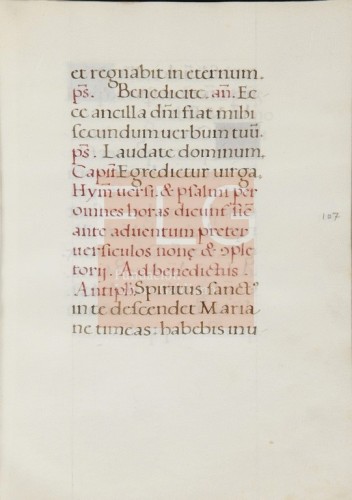 et regnabit in eternum.
p̄s. Benedicite. an̄. Ec
ce ancilla dn̄i fiat mihi
secundum uerbum tuū.
p̄s. Laudate dominum.
Capit̄. Egredietur uirga.
Hym̄. uersi. & psalmi per
omnes horas dicunt᷑
ante aduentum preter
uersiculos none & ɔple
torij. Ad benedictus.
Antiph̄. Spiritus sanct᷒
in te descendet Maria
ne timeas: habebis in u
107
TLG